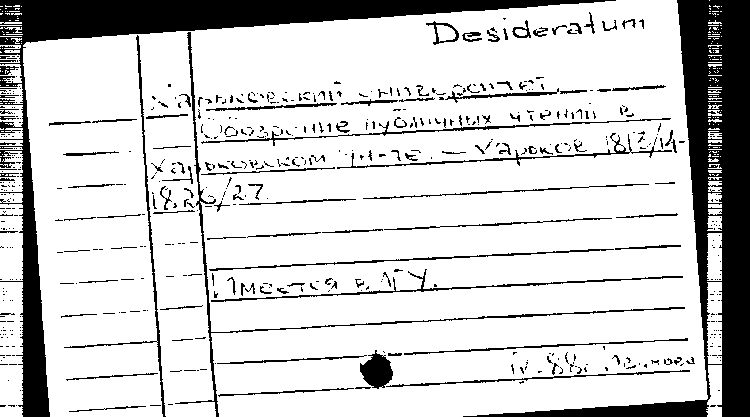 Desideratum
Харьковский университет.
Обозрение публичных чтений в
Харьковском ун-те. – Харьков, 1813/14-
1826/27.
Имеется в ЛГУ.
IV.88.